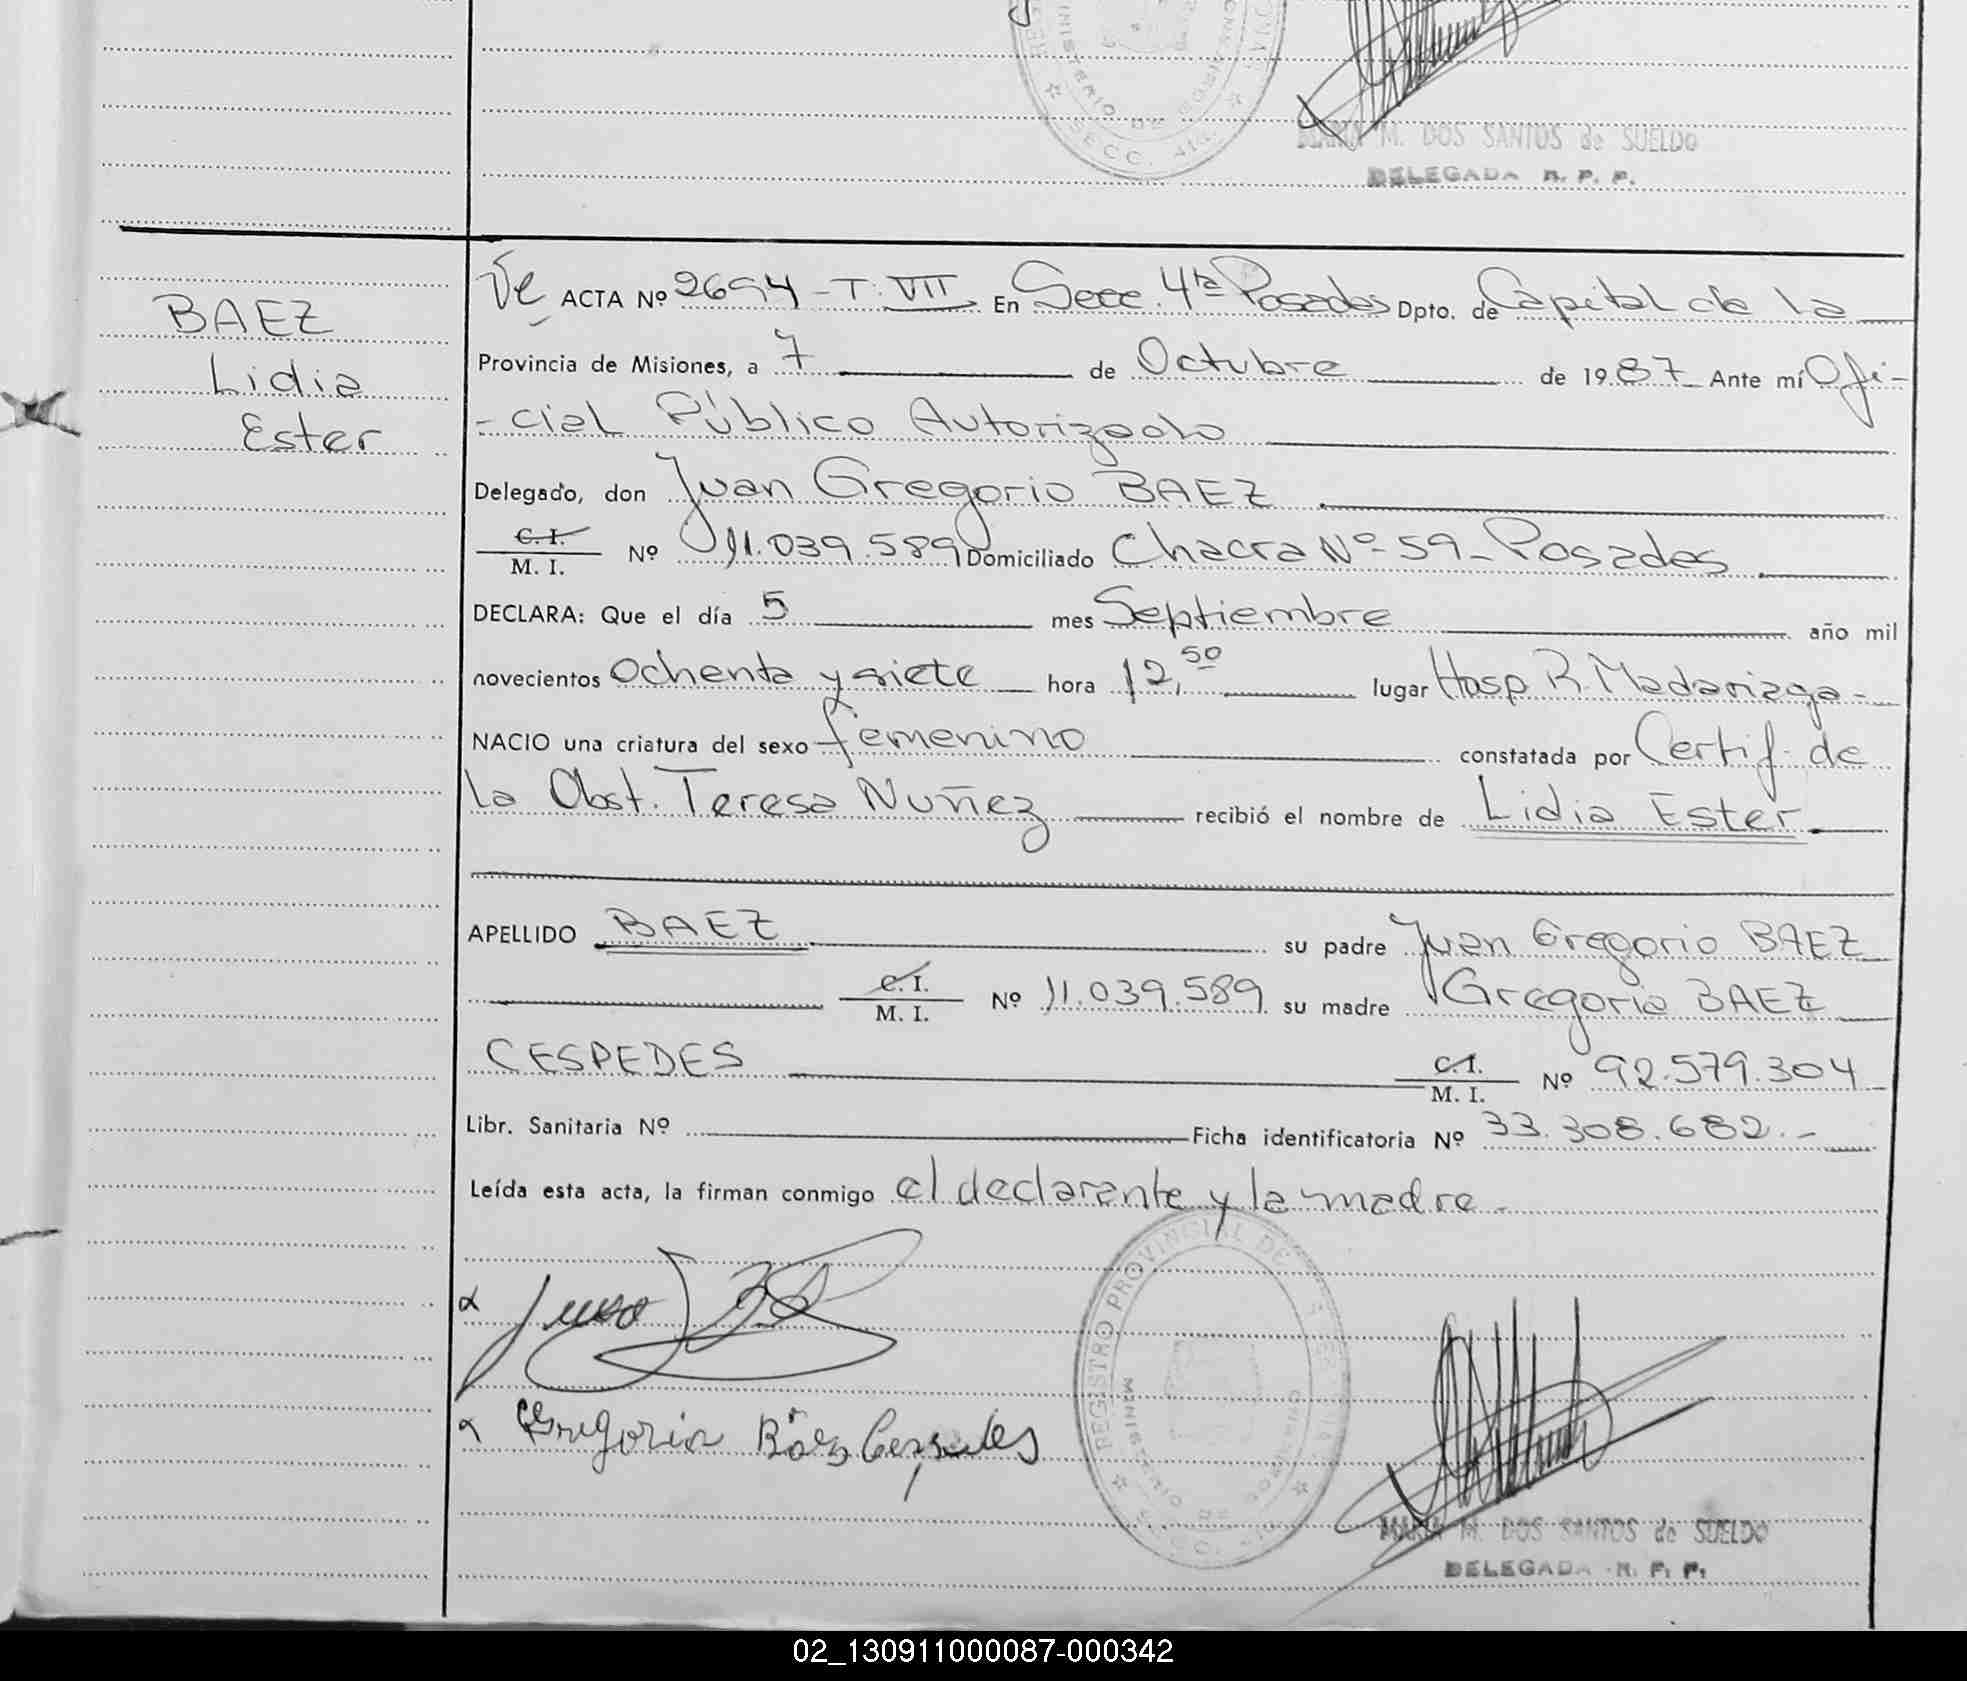 MINISTERIO DE GOBIERNO
SECC. 4ta.
MARIA M. DOS SANTOS de SUELDO
DELEGADA R. P. P.
BAEZ
Lidia
Ester
ACTA Nº 2694 - T. VII En Secc. 4ta Posadas Dpto. de Capital de la
Provincia de Misiones, a 7 de Octubre de 1987 Ante mí Ofi-
- cial Público Autorizado
Delegado, don Juan Gregorio BAEZ
C. I.
M. I. Nº 11.039.589 Domiciliado Chacra Nº 59 - Posadas
DECLARA: Que el día 5 mes Septiembre año mil
novecientos Ochenta y siete hora 12,50 lugar Hosp R. Madariaga -
NACIO una criatura del sexo femenino constatada por Certif. de
la Obst. Teresa Nuñez recibió el nombre de Lidia Ester
APELLIDO BAEZ su padre Juan Gregorio BAEZ
C. I.
M. I. Nº 11.039.589 su madre Gregoria BAEZ
CESPEDES C. I.
M. I. Nº 92.579.304
Libr. Sanitaria Nº Ficha identificatoria Nº 33.308.682.-
Leída esta acta, la firman conmigo el declarante y la madre -
REGISTRO PROVINCIAL DE
MINISTERIO DE GOBIERNO
Juan
Gregoria Báez Cespedes
MARIA M. DOS SANTOS de SUELDO
DELEGADA R. P. P.
02_130911000087-000342